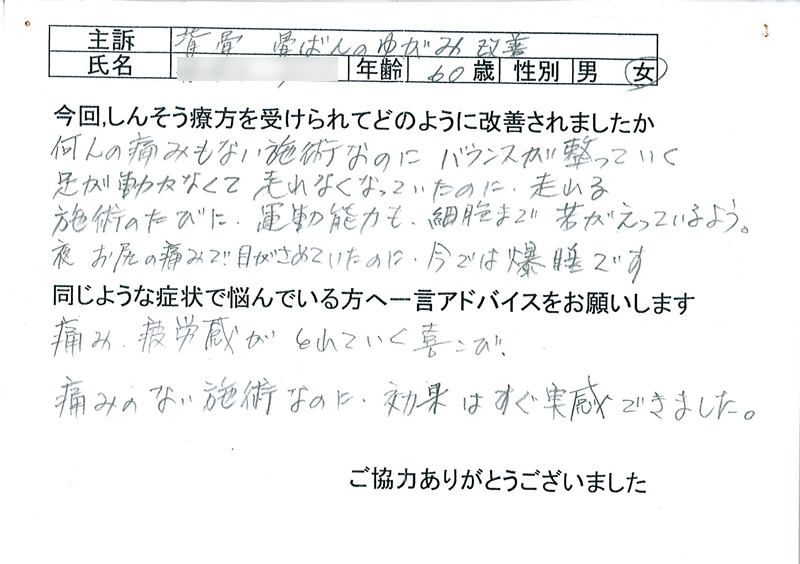 主訴 背骨 骨ばんのゆがみ 改善
氏名 年齢 60 歳 性別 男 女
今回,しんそう療方を受けられてどのように改善されましたか
何んの痛みもない施術なのに バランスが整っていく
足が動かなくて 走れなくなっていたのに、走れる
施術のたびに、運動能力も、細胞まで 若がえっているよう。
夜 お尻の痛みで目がさめていたのに、今では爆睡です
同じような症状で悩んでいる方へ一言アドバイスをお願いします
痛み、疲労感が とれていく喜こび、
痛みのない施術なのに、効果はすぐ実感できました。
ご協力ありがとうございました